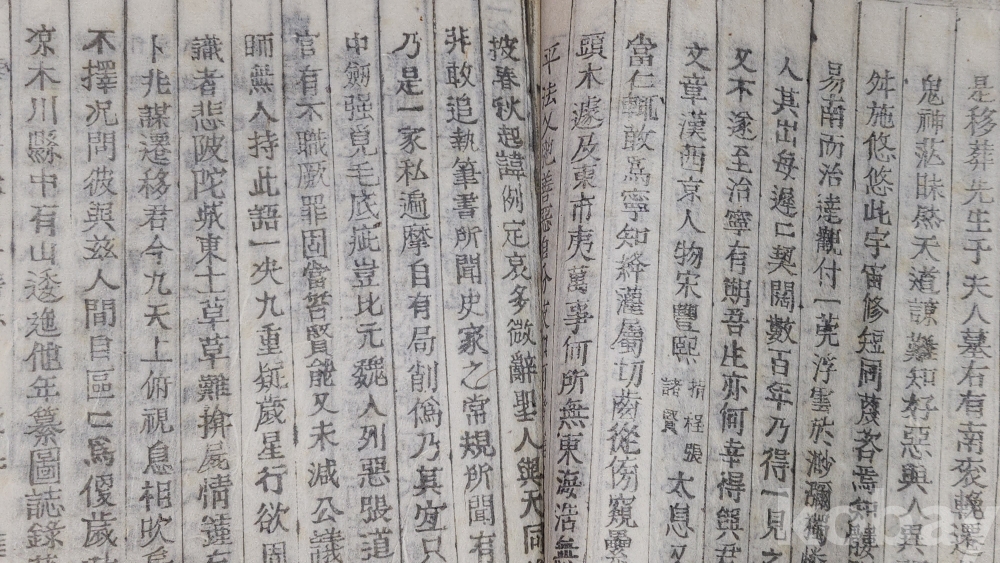 是移葬先生于夫人墓右有南袞輓還
鬼神茫昧然天道諒難知好惡與人異
舛施悠悠此宇宙修短同茂吝焉知
易南而治達觀付一莞浮雲於渺瀰獨
人其出每遲亡契闊數百年乃得一見之
又不遂至治寧有期吾生亦何幸得與君
文章漢西京人物宋豐熙
指程張
諸賢
太息又
當仁輒敢爲寧知絳灌屬切齒從傍窺
頭木遽及東市夷萬事何所無東海浩無
按春秋起諱例定哀多微辭聖人與天同
非敢追執筆書所聞史家之常規所聞有
乃是一家私遍摩自有局削僞乃其宜只
中劒强覓毛底疵豈比元魏人列惡張道
官有不職厥罪固當笞賢能又未減公議
師無人持此語一決九重疑歲星行欲周
識者悲陂陀城東土草草難揜屍情鍾
卜兆謀遷移君今九天上俯視息相吹
不擇况問彼與茲人間自區亡爲傻歲
凉木川縣中有山逶迤他年纂圖誌錄
kobay